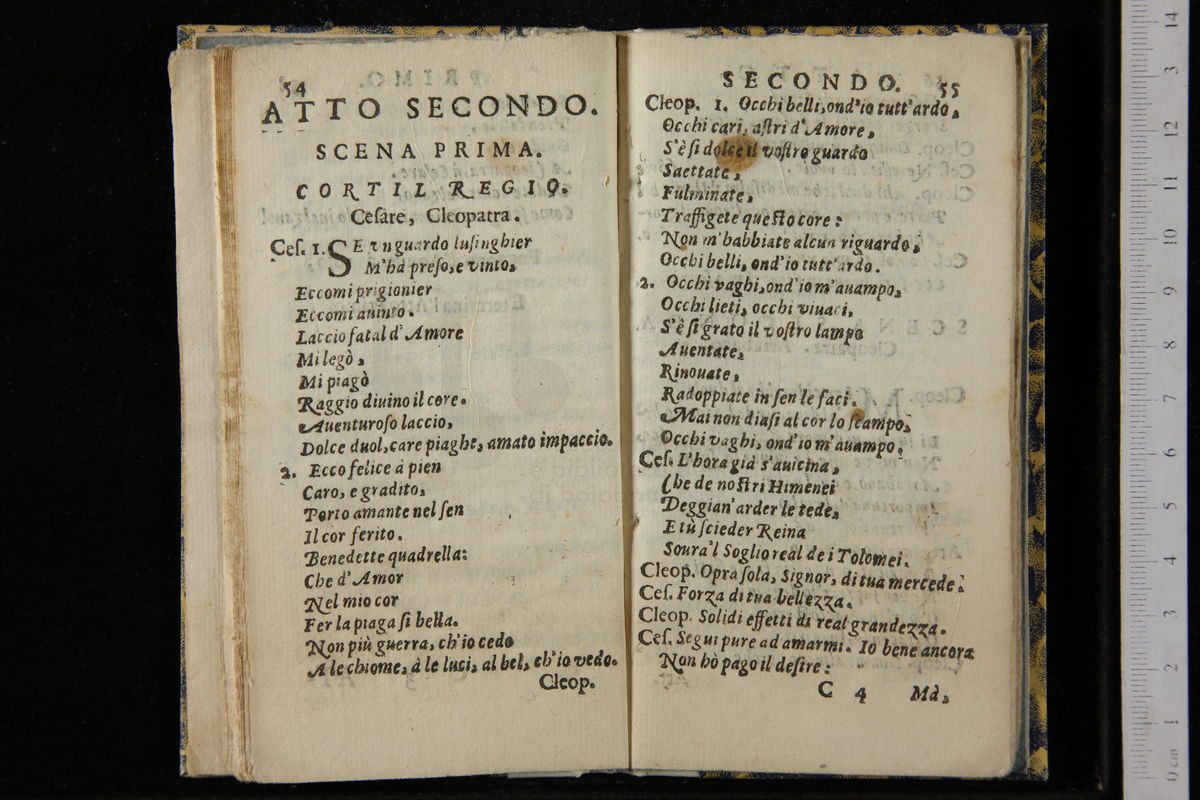 54
ATTO SECONDO.
SCENA PRIMA.
CORTIL REGIO.
Cesare, Cleopatra.
Ces. 1. SE vn guardo lusinghier
M'hà preso, e vinto,
Eccomi prigionier
Eccomi auinto.
Laccio fatal d'Amore
Mi legò,
Mi piagò
Raggio diuino il core.
Auenturoso laccio,
Dolce duol, care piaghe, amato impaccio.
2. Ecco felice à pien
Caro, e gradito,
Porto amante nel sen
Il cor ferito.
Benedette quadrella:
Che d'Amor
Nel mio cor
Fer la piaga si bella.
Non più guerra, ch'io cedo
A le chiome, à le luci, al bel, ch'io vedo.
Cleop.
SECONDO. 55
Cleop. 1. Occhi belli, ond'io tutt'ardo,
Occhi cari, astri d'Amore,
S'è si dolce il vostro guardo
Saettate,
Fulminate,
Traffigete questo core:
Non m'habbiate alcun riguardo,
Occhi belli, ond'io tutt'ardo.
2. Occhi vaghi, ond'io m'auampo,
Occhi lieti, occhi viuaci,
S'è si grato il vostro lampo
Auentate,
Rinouate,
Radoppiate in sen le faci.
Mai non diasi al cor lo scampo,
Occhi vaghi, ond'io m'auampo.
Ces. L'hora già s'auicina,
Che de nostri Himenei
Deggian'arder le tede,
E tù scieder Reina
Soura'l Soglio real de i Tolomei.
Cleop. Opra sola, Signor, di tua mercede.
Ces. Forza di tua bellezza.
Cleop. Solidi effetti di real grandezza.
Ces. Segui pure ad amarmi. Io bene ancora
Non hò pago il desire:
C 4 Mà,